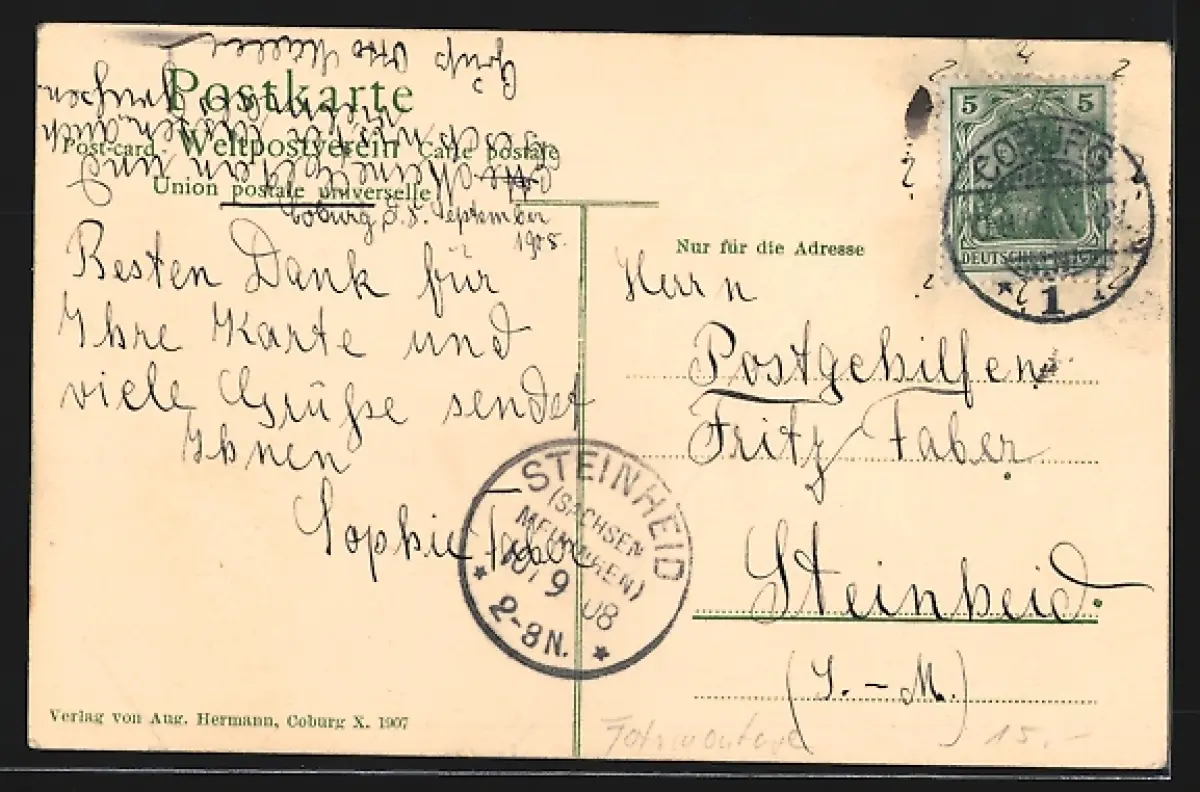 Gruß Otto Müller
Postkarte
Post-card - Weltpostverein Carte postale
Union postale universelle
Coburg d. 8. September
1908.
Besten Dank für
Ihre Karte und
viele Grüße sendet
Ihnen
Sophie Faber
Nur für die Adresse
5 5
DEUTSCHES REICH
COBURG
* 1
Herrn
Postgehilfen
Fritz Faber.
Steinheid.
(S.-M.)
STEINHEID
(SACHSEN
MEININGEN)
9 08
* 2-8N. *
Verlag von Aug. Hermann, Coburg X. 1907
15.-